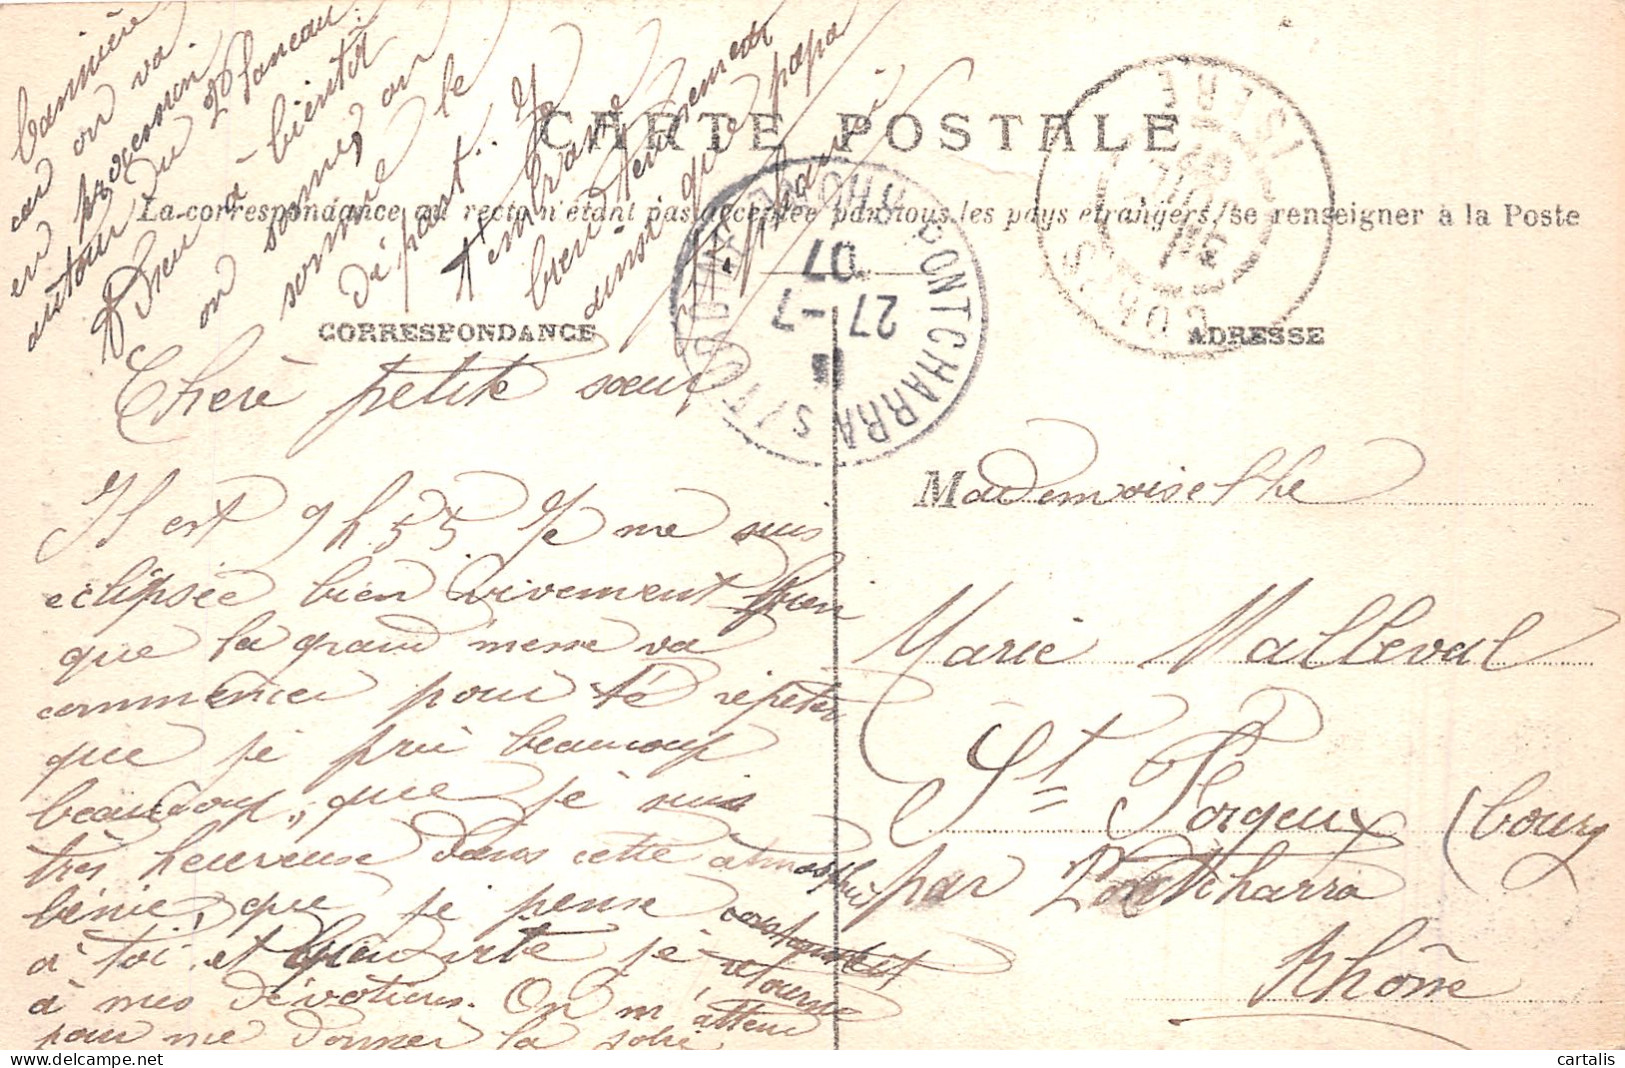 CARTE POSTALE
La correspondance au recto n'étant pas acceptée par tous les pays étrangers, se renseigner à la Poste
CORRESPONDANCE
ADRESSE
Cherè petite sœur,
Il est 9 h. 55 Je me suis
eclipsée bien vivement bien
que la grand'messe va
commencer pour te répéter
que je prie beaucoup
beaucoup, que je suis
très heureuse dans cette atmosphère
bénie, que je pense constamment
à toi, et que vite je retourne
à mes dévotions. On m'attend
pour me donner la
bannière
car on va
en procession
autour du Planeau.
Adieu à bientôt
on sonne, on
sonne le
départ.. Je
t'embrasse
bien tendrement
ainsi que papa
Mademoiselle
Marie Malleval
St Forgeux (bourg
par Pontcharra
Rhône
PONTCHARRA S/ TURDINE RHONE
27-7
07
ISERE